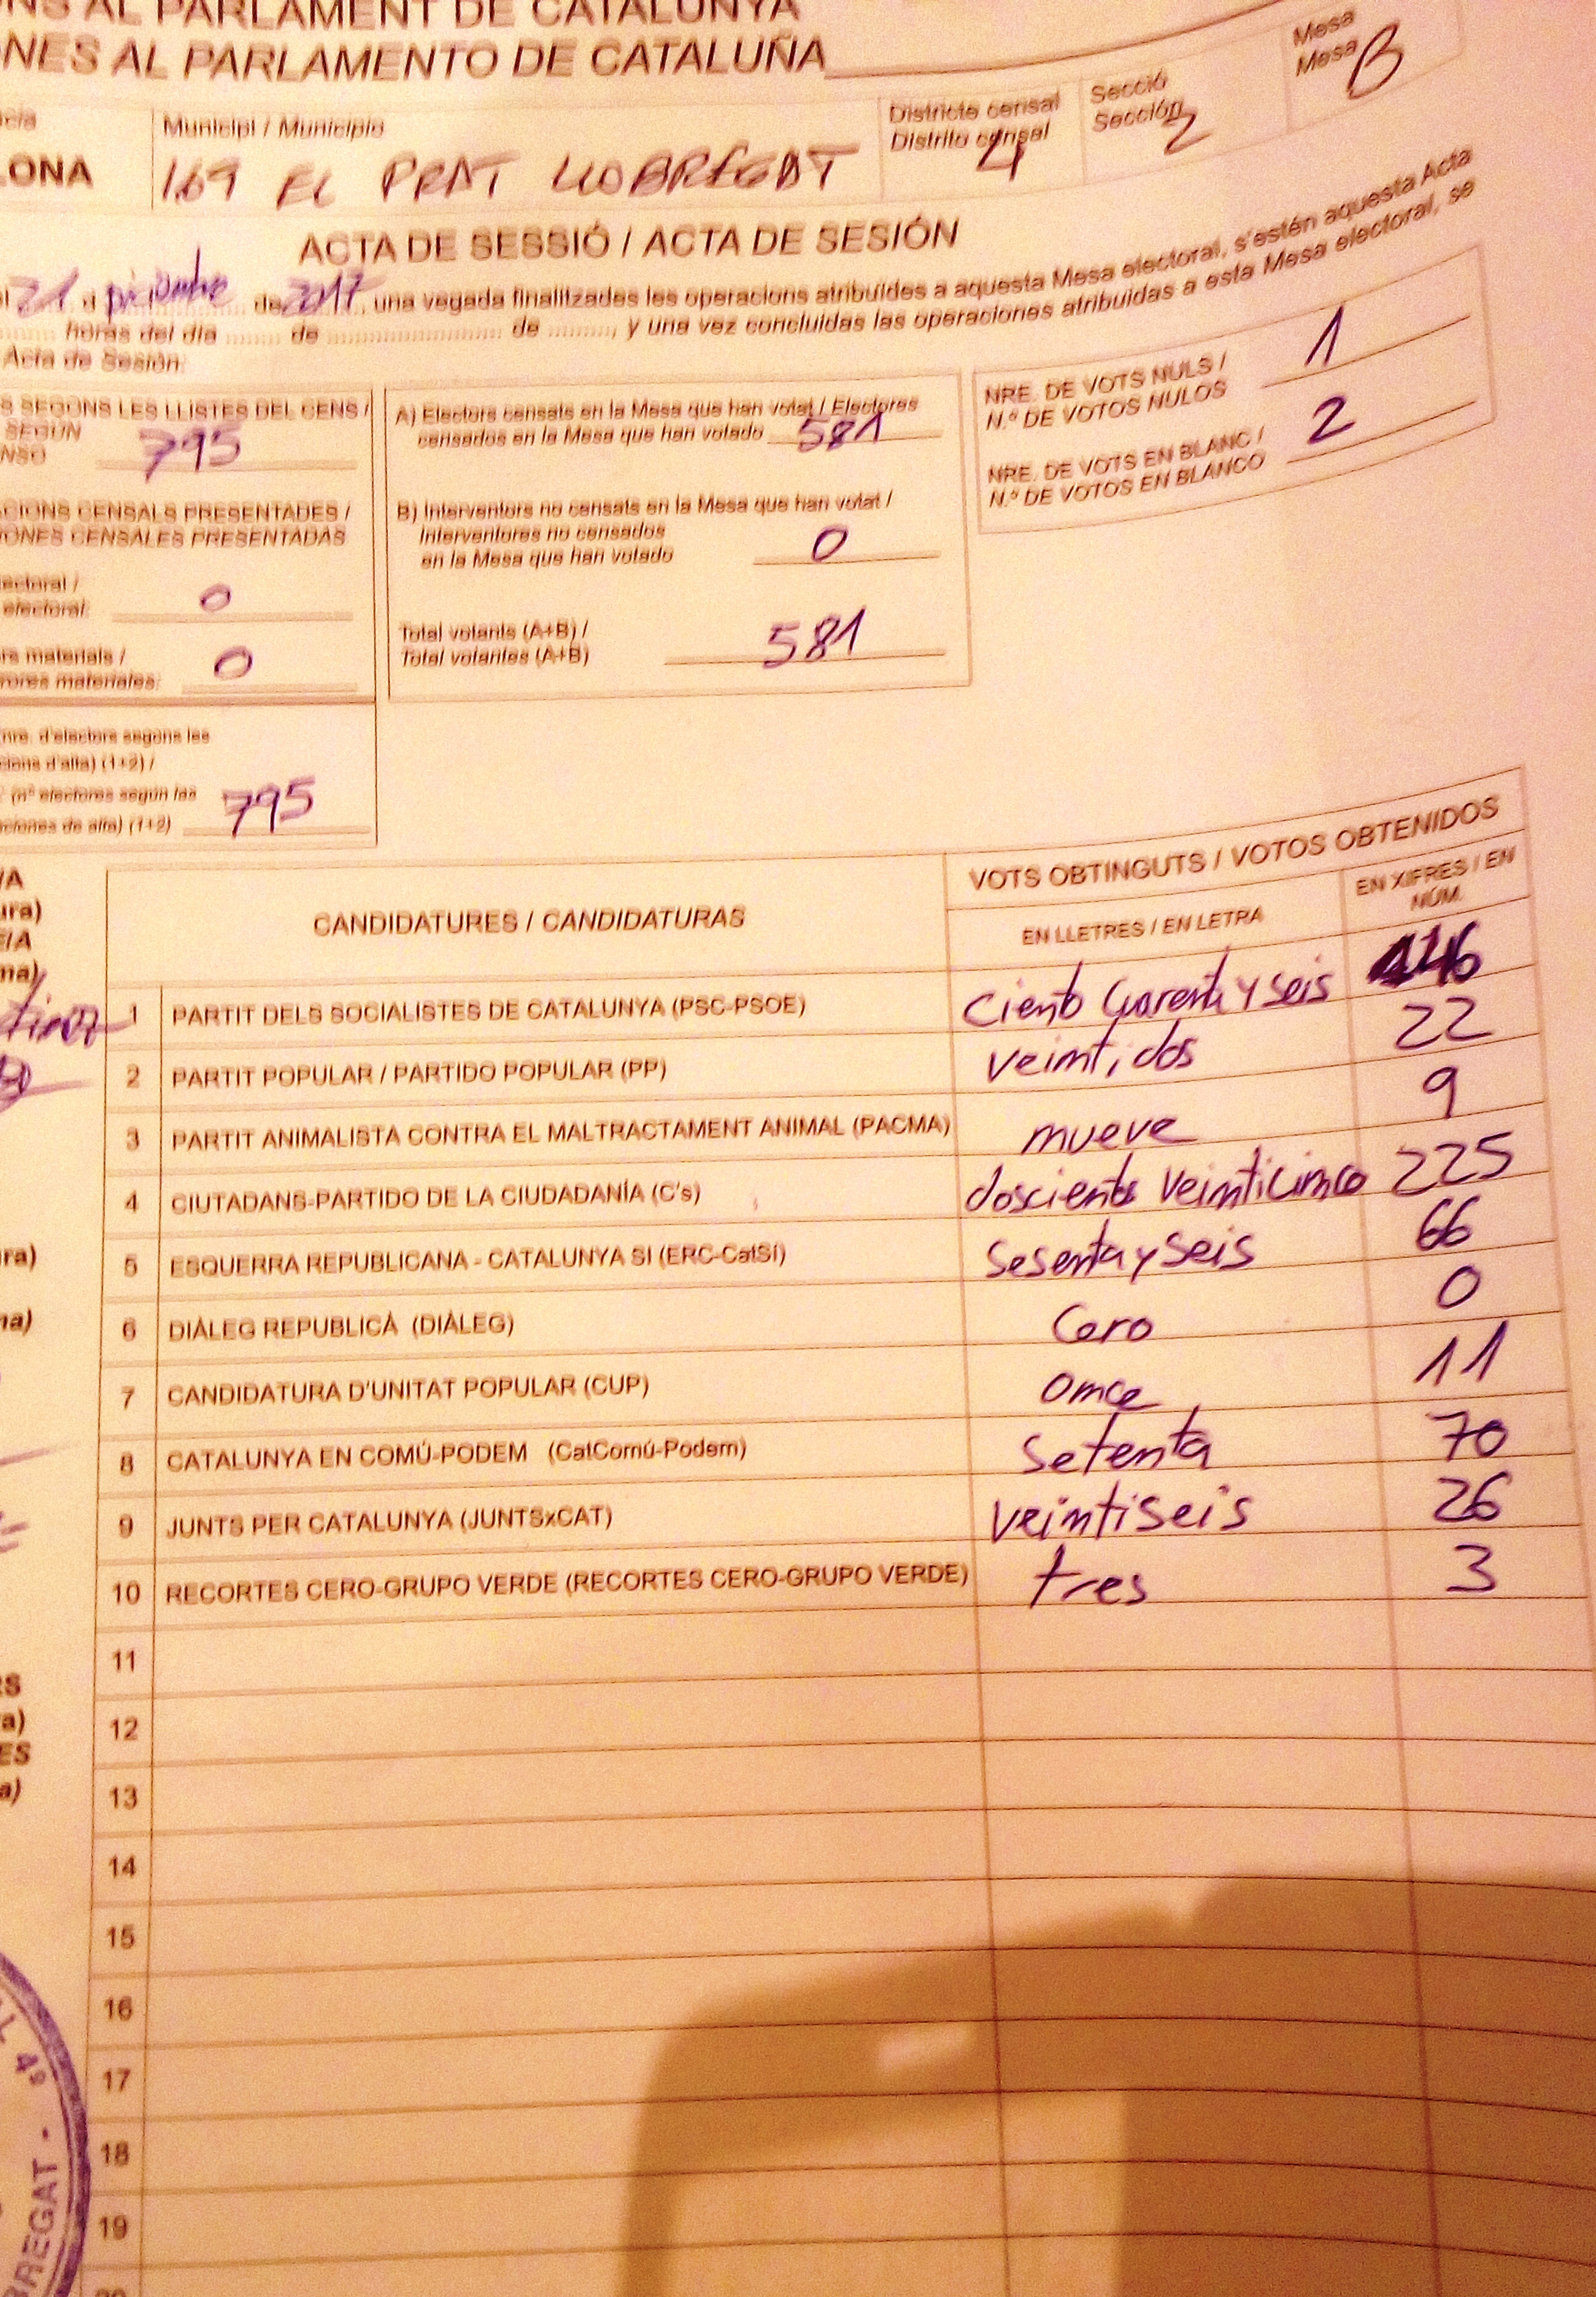 NS AL PARLAMENT DE CATALUNYA
NES AL PARLAMENTO DE CATALUÑA
Municipi / Municipio
Districte censal
Distrito censal
Secció
Sección
Mesa
Mesa
LONA
169 EL PRAT LLOBREGAT
4
2
B
ACTA DE SESSIÓ / ACTA DE SESIÓN
21 d diciembre de 2017, una vegada finalitzades les operacions atribuïdes a aquesta Mesa electoral, s'estén aquesta Acta
horas del día ........ de ........................ de ........., y una vez concluidas las operaciones atribuidas a esta Mesa electoral, se
Acta de Sesión:
S SEGONS LES LLISTES DEL CENS /
SEGÚN
NSO 795
CIONS CENSALS PRESENTADES /
IONES CENSALES PRESENTADAS
ectoral /
electoral: 0
rs materials /
rores materiales: 0
(nre. d'electors segons les
cions d'alta) (1+2) /
(nº electores según las
ciones de alta) (1+2) 795
A) Electors censats en la Mesa que han votat / Electores
censados en la Mesa que han votado 581
B) Interventors no censats en la Mesa que han votat /
Interventores no censados
en la Mesa que han votado 0
Total votants (A+B) /
Total votantes (A+B) 581
NRE. DE VOTS NULS /
N.º DE VOTOS NULOS 1
NRE. DE VOTS EN BLANC /
N.º DE VOTOS EN BLANCO 2
CANDIDATURES / CANDIDATURAS
VOTS OBTINGUTS / VOTOS OBTENIDOS
EN LLETRES / EN LETRA
EN XIFRES / EN
NÚM.
1 PARTIT DELS SOCIALISTES DE CATALUNYA (PSC-PSOE) Ciento Cuarenta y seis 146
2 PARTIT POPULAR / PARTIDO POPULAR (PP) veintidos 22
3 PARTIT ANIMALISTA CONTRA EL MALTRACTAMENT ANIMAL (PACMA) nueve 9
4 CIUTADANS-PARTIDO DE LA CIUDADANÍA (C's) doscientos veinticinco 225
5 ESQUERRA REPUBLICANA - CATALUNYA SI (ERC-CatSí) Sesenta y seis 66
6 DIÀLEG REPUBLICÀ (DIÀLEG) Cero 0
7 CANDIDATURA D'UNITAT POPULAR (CUP) once 11
8 CATALUNYA EN COMÚ-PODEM (CatComú-Podem) Setenta 70
9 JUNTS PER CATALUNYA (JUNTSxCAT) veintiseis 26
10 RECORTES CERO-GRUPO VERDE (RECORTES CERO-GRUPO VERDE) tres 3
11
12
13
14
15
16
17
18
19
/A
ura)
E/A
ma)
ra)
na)
RS
a)
ES
a)
L 4º
BREGAT -